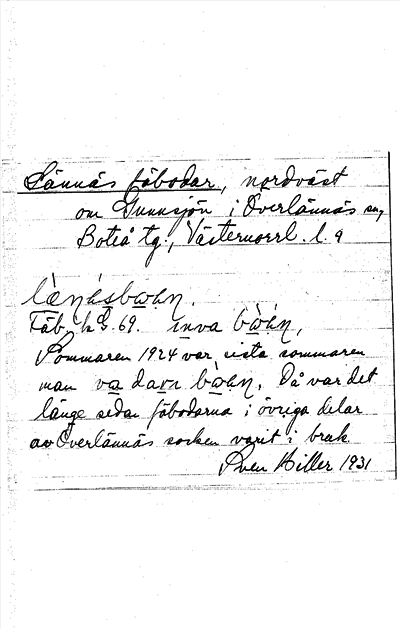 Sännäs fäbodar, nordväst
om Gunnsjön i Överlännäs sn,
Boteå tg., Västernorrl. l.
Fäb. k 69. inva
Sommaren 1924 var sista sommaren
man va darn Då var det
länge sedan fäbodarna i övriga delar
av Överlännäs socken varit i bruk
Sven Hiller 1931